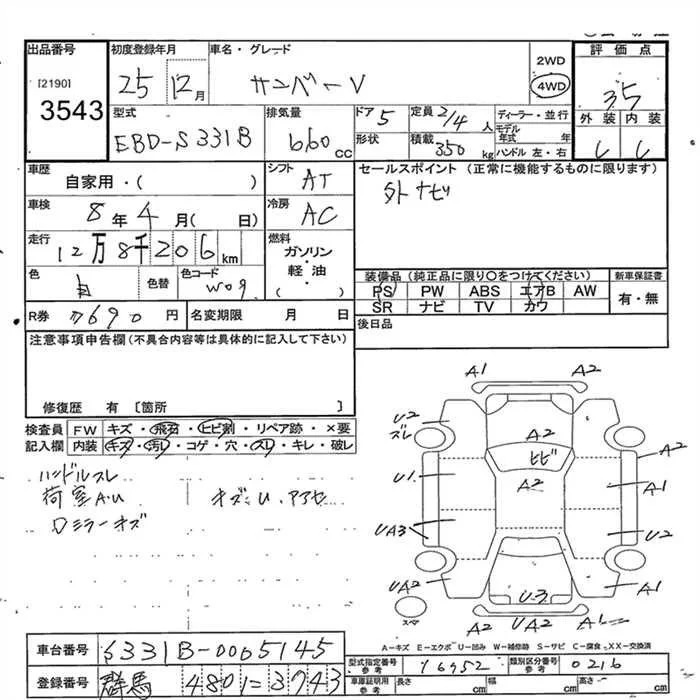 出品番号
[2190]
3543
初度登録年月
25 12月
車名・グレード
サンバーV
2WD
4WD
評価点
3.5
外装 内装
C C
型式
EBD-S331B
排気量
660 cc
ドア 5
形状
定員 2/4 人
積載 350 kg
ディーラー・並行
モデル年式 年
ハンドル 左・右
車歴
自家用・( )
シフト AT
セールスポイント (正常に機能するものに限ります)
外ナビ
車検
8年 4月( 日)
冷房 AC
走行
12万8千206 km
燃料
ガソリン・軽油・( )
色 白
色替
色コード W09
装備品 (純正品に限り○をつけてください)
PS PW ABS エアB AW
SR ナビ TV カワ
新車保証書
有・無
R券 7690 円
名変期限 月 日
後日品
注意事項申告欄(不具合内容等は具体的に記入して下さい)
修復歴 有 〔箇所 〕
検査員 FW キズ・飛石・ヒビ割・リペア跡・×要
記入欄 内装 キズ・汚レ・コゲ・穴・スレ・キレ・破レ
ハンドルスレ
荷室A.U キズ.U.アアセ
Dミラーキズ
A1 A2
U2
ズレ
A2
ヒビ
A2
A2
U1
A1
UA3
U2
UA2
A1
U3
スペア
A2 UA2 A1
A=キズ E=エクボ U=凹み W=補修跡 S=サビ C=腐食 XX=交換済
車台番号 S331B-0005145
型式指定番号 参考 16952 類別区分番号 参考 0216
登録番号 群馬 480 に 3743
車庫証明用 参考 長さ cm 幅 cm 高さ cm